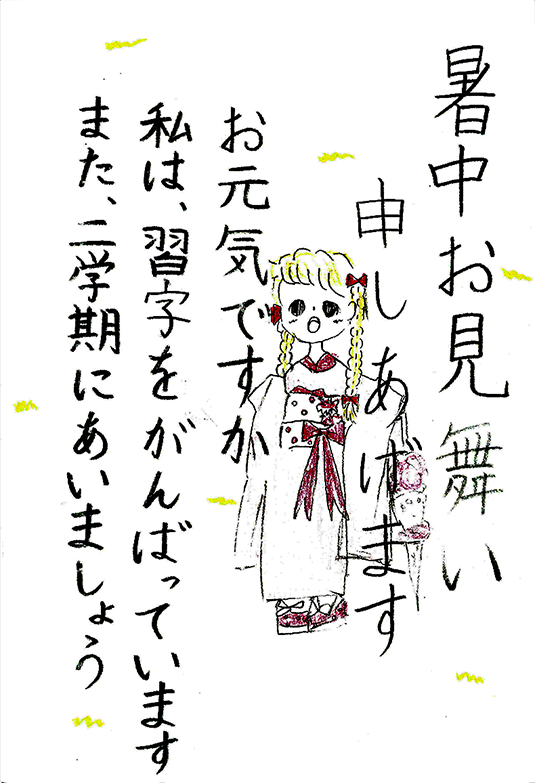 暑中お見舞い
申しあげます
お元気ですか
私は、習字をがんばっています
また、二学期にあいましょう